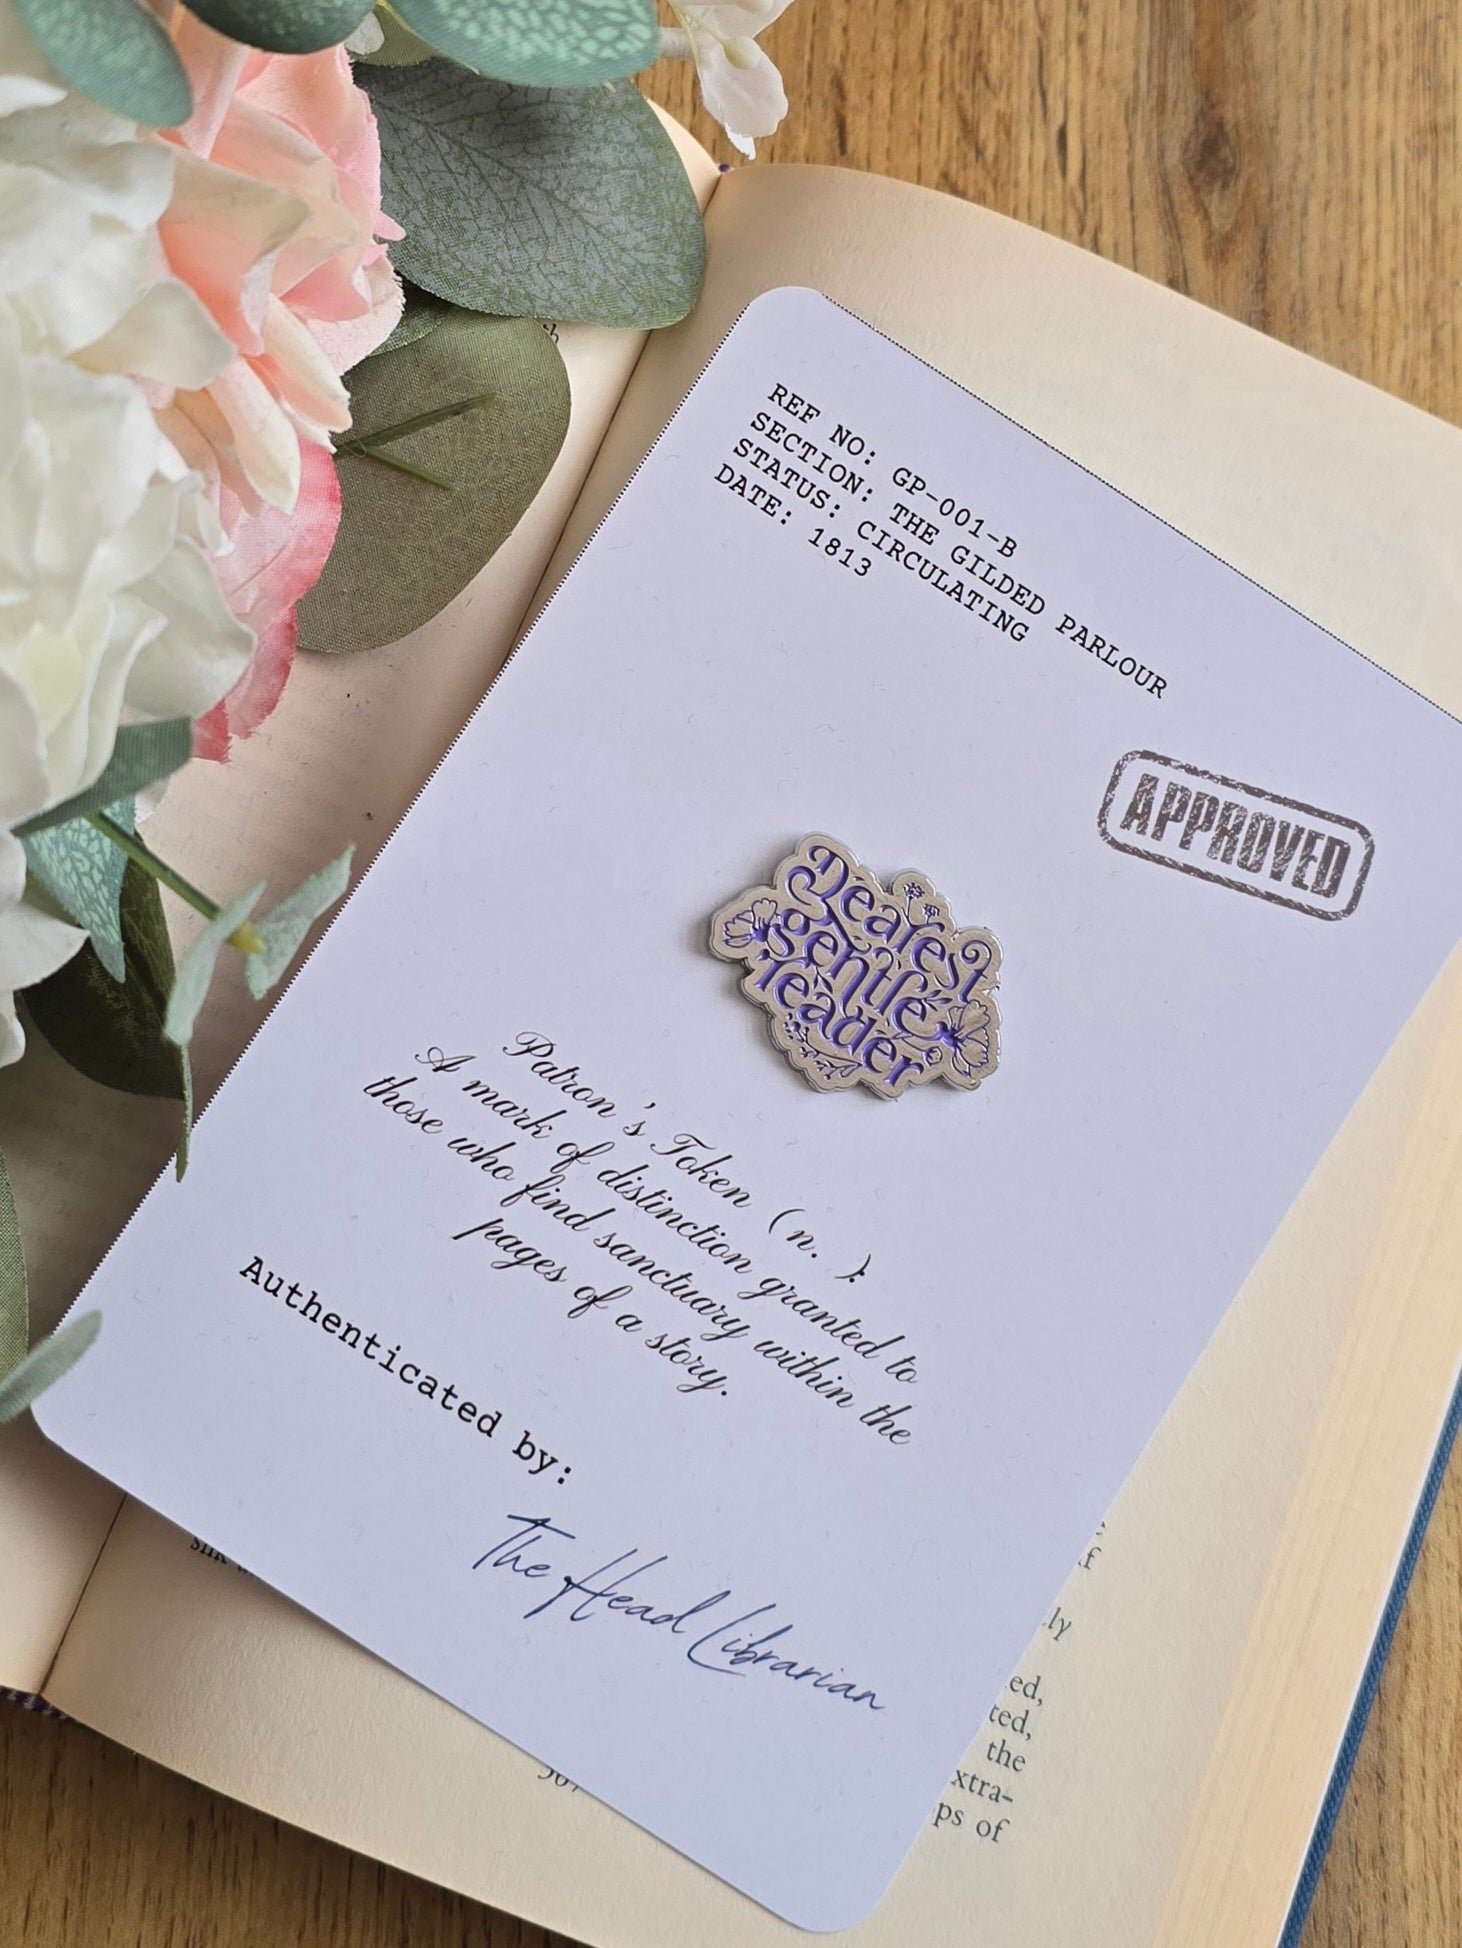 REF NO: GP-001-B
SECTION: THE GILDED PARLOUR
STATUS: CIRCULATING
DATE: 1813
APPROVED
Dearest
gentle
reader
Patron's Token (n. ):
A mark of distinction granted to
those who find sanctuary within the
pages of a story.
Authenticated by:
The Head Librarian
ly
ed,
ted,
the
xtra-
ps of